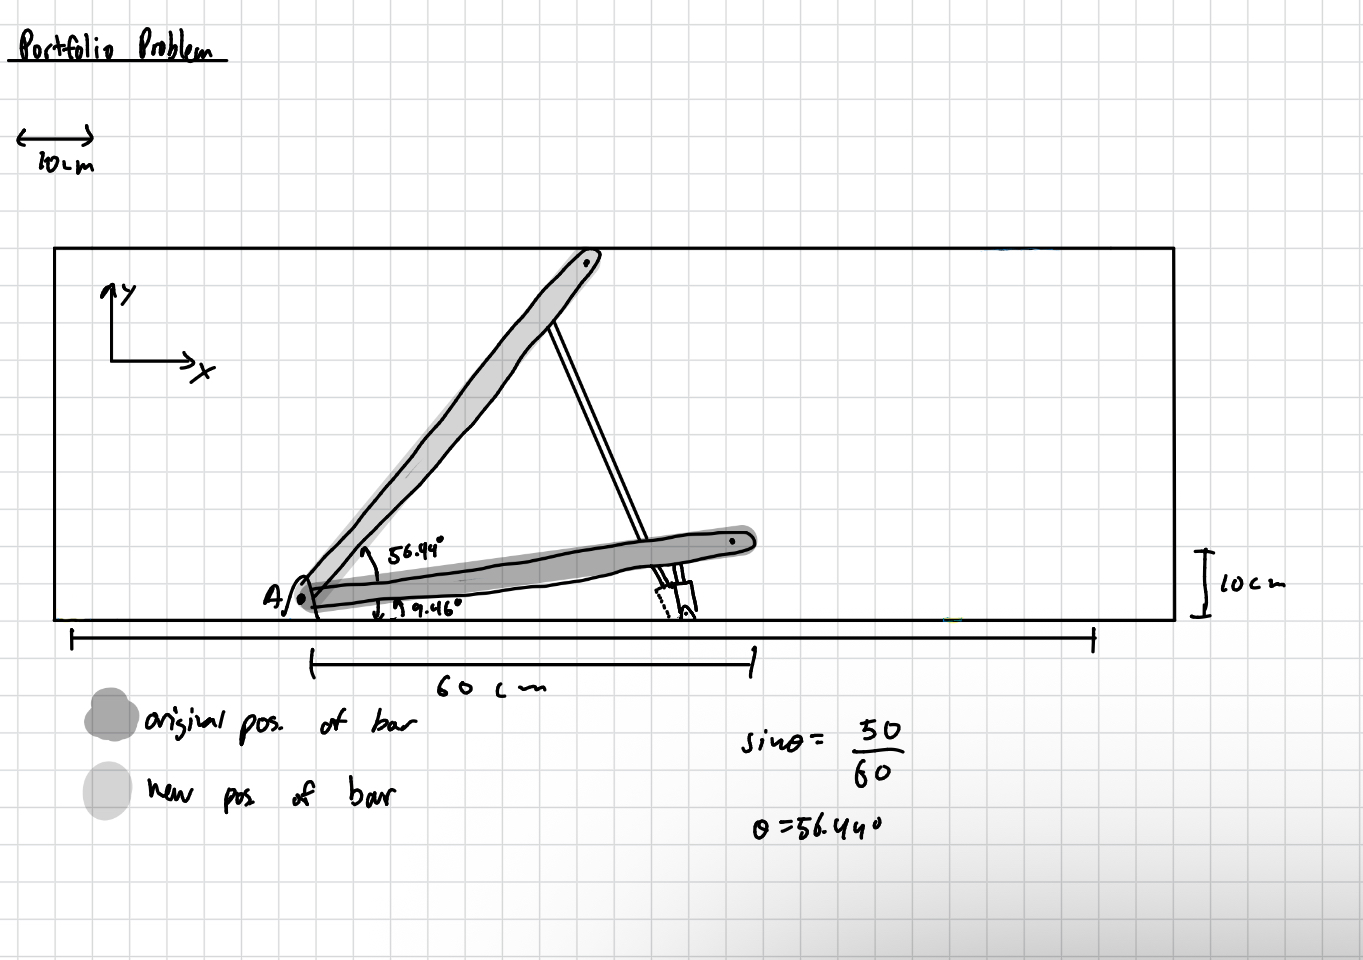 Portfolio Problem
10cm
y
x
56.44°
A
9.46°
10cm
60 cm
original pos. of bar
new pos. of bar
sinθ = 50/60
θ = 56.44°